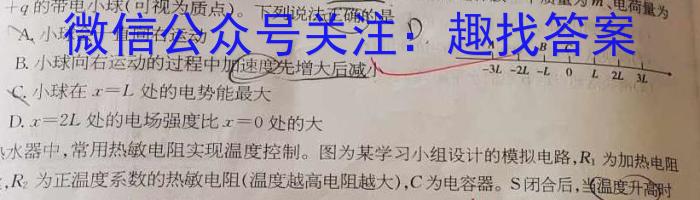 +q的带电小球(可视为质点)。下列说法正确的是
质量为m、电荷量为
A. 小球 一直向右运动
微信公众号关注：趣找答案
B. 小球向右运动的过程中加速度先增大后减小
-3L -2L -L 0 L 2L 3L
C. 小球在x=L处的电势能最大
D. x=2L处的电场强度比x=0处的大
热水器中,常用热敏电阻实现温度控制。图为某学习小组设计的模拟电路,R₁为加热电阻
,R₂为正温度系数的热敏电阻(温度越高电阻越大),C为电容器。S闭合后,当温度升高时